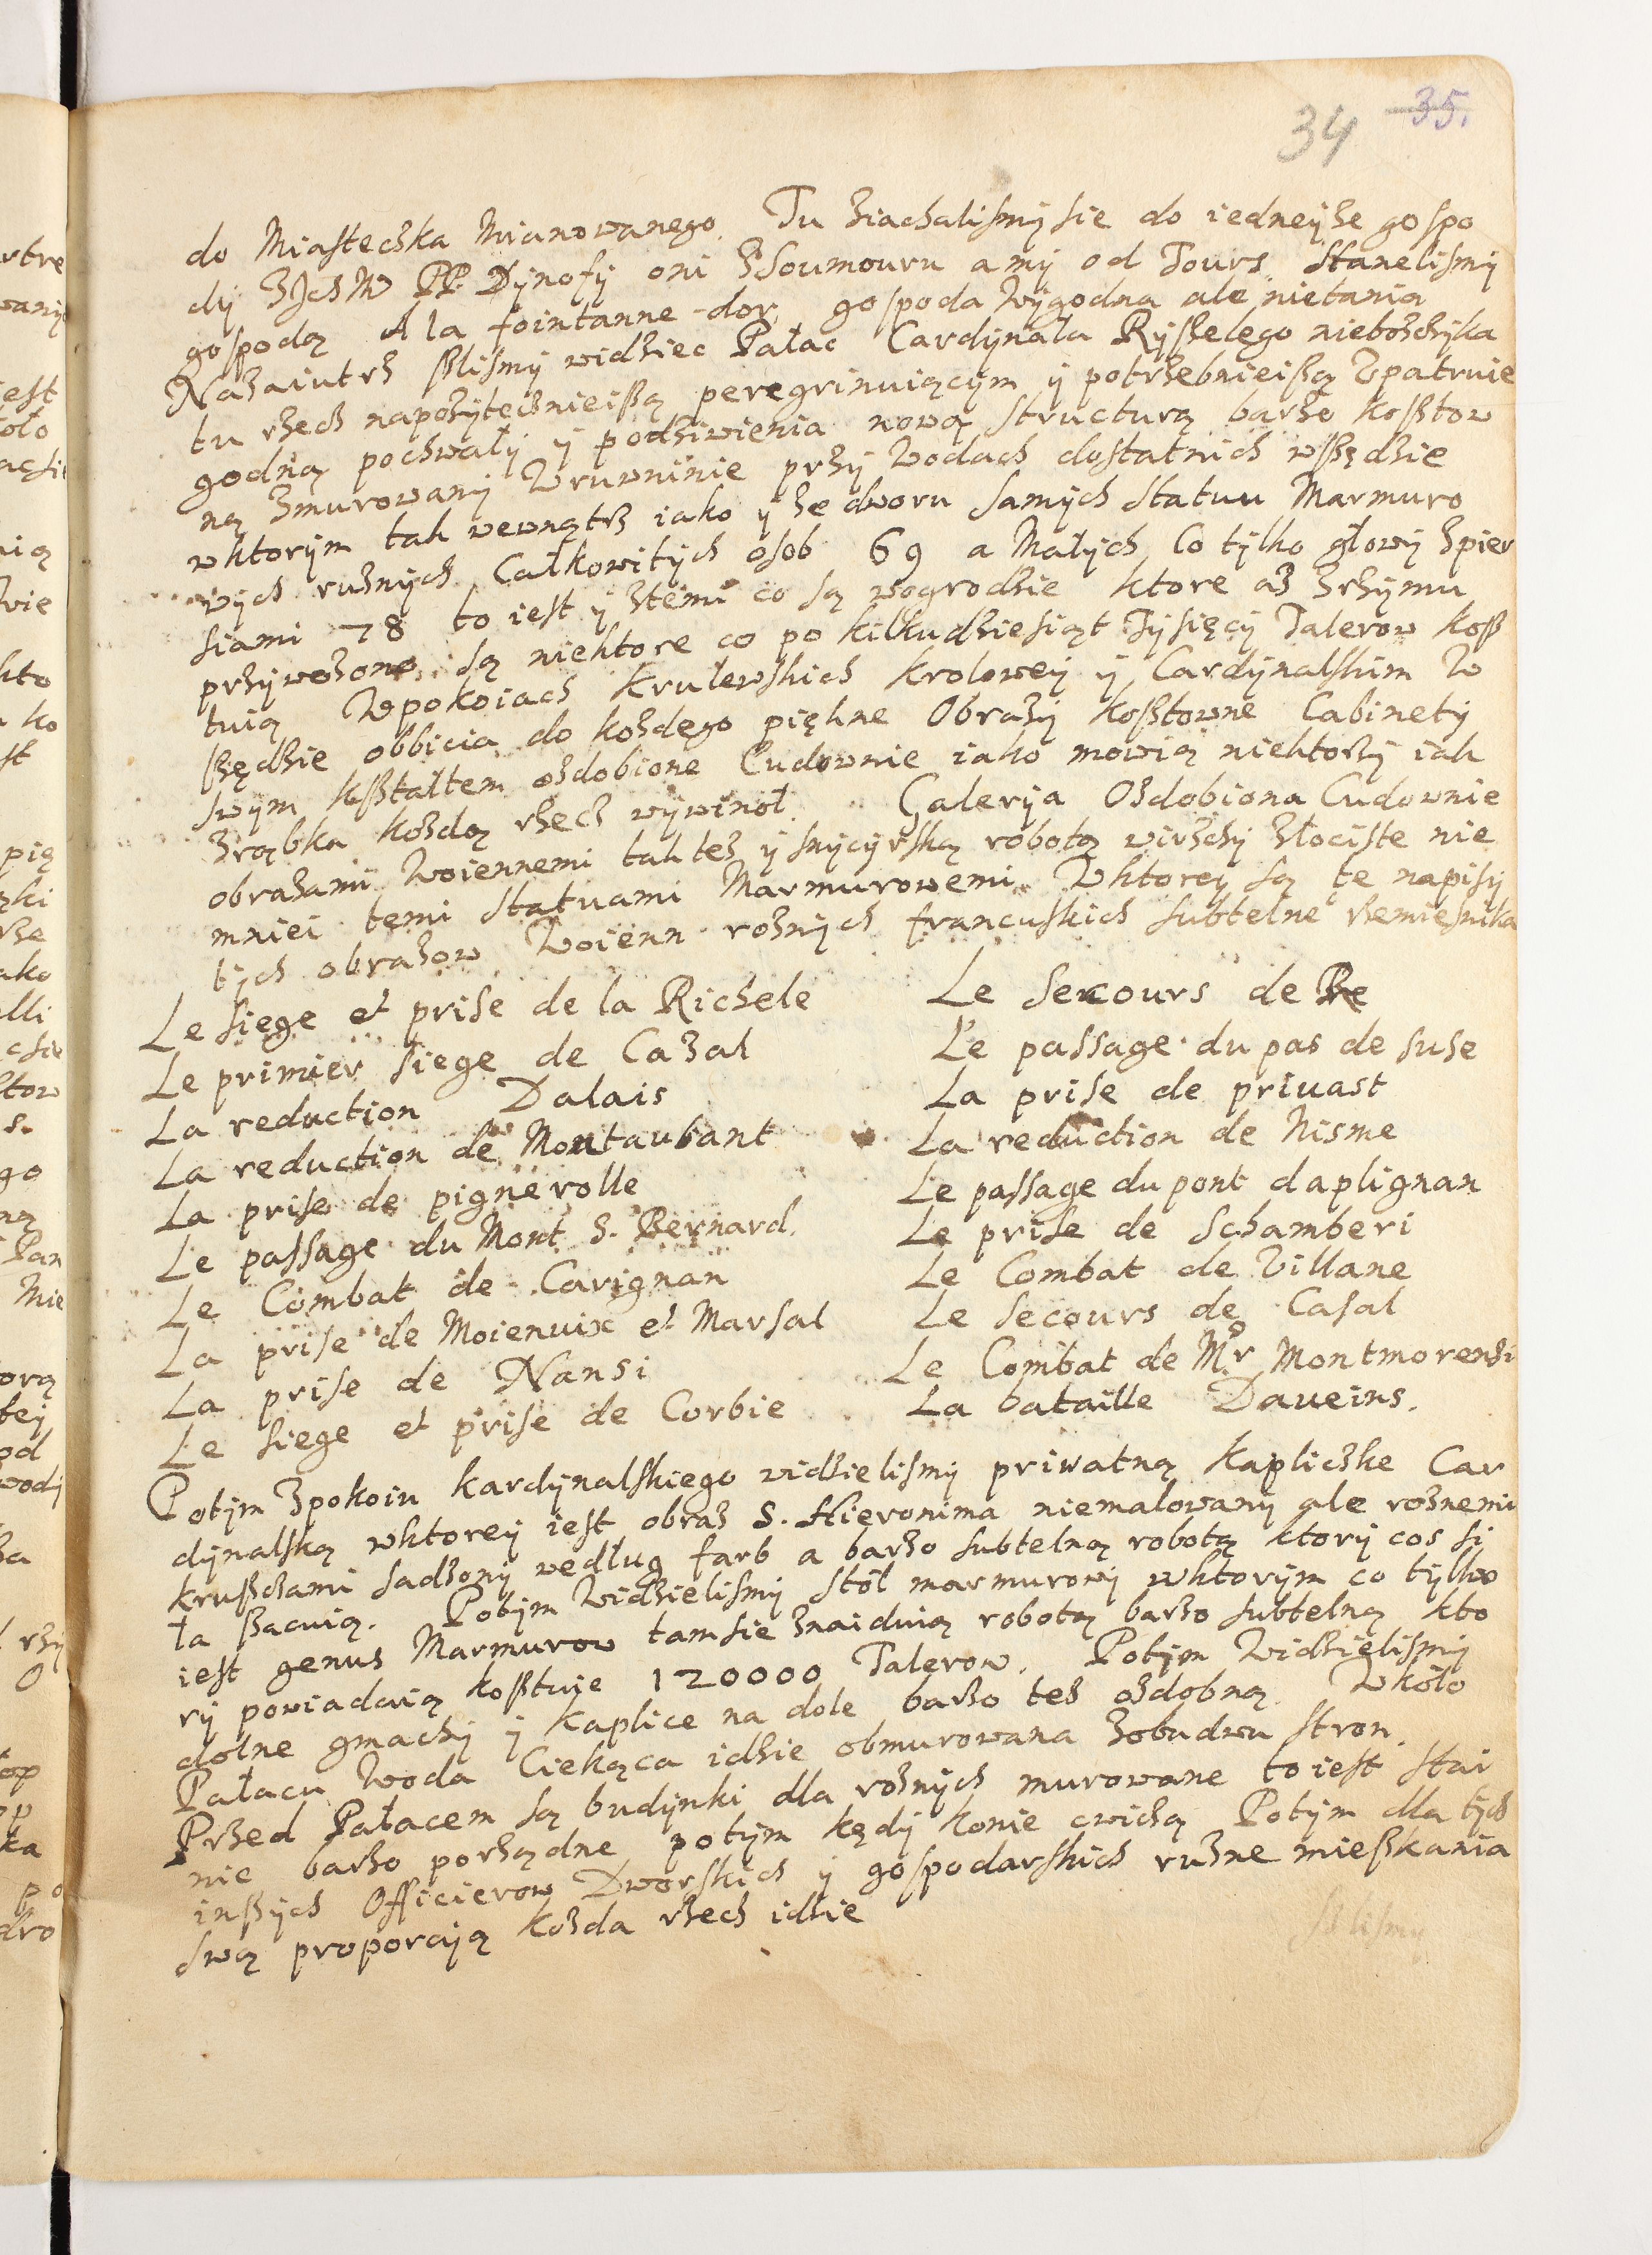 34 35.
do Miasteczka Mianowanego. Tu ziachalismy sie do iedneyże gospo
dy z JchM PP. Dynofy oni z Soumouru a my od Tours. Stanelismy
gospodą A la fointanne-dor, gospoda wygodna ale nietania
Nazaiutrz szlismy widziec Pałac Cardynała Ryszelego nieboszczyka
tu rzecz napożytecznieiszą peregrinuiącym y potrzebnieiszą Upatruie
godną pochwały y podziwienia nową structurą barzo kosztow
ną zmurowany Wruwninie przy Wodach dostatnich wszędzie
wktorym tak wewnątrz iako y ze dworu samych Statuu Marmuro
wych rużnych Całkowitych osob 69 a Małych Co tylko głowy z pier
siami 78 to iest y z temi co są wogrodzie ktore aż z rzymu
przywożone. są niektore co po kilkudziesiąt Tysięcy Talerow kosz
tuią Wpokoiach Krulewskich krolowey y Cardynalskim W
szędzie obbicia do każdego piękne Obrazy kosztowne Cabinety
swym ksztaltem ozdobione Cudownie iako mowią niektorzy iak
z rąbka każdą rzecz wywinoł. Galeryja Ozdobiona Cudownie
obrazami Woiennemi takteż y snycyrską robotą wirzchy złociste nie
mniei temi statuami Marmurowemi. Wktorey są te napisy
tych obrazow Woienn rożnych francuskich subtelne rzemiesnika
Le siege et prise de la Richele Le secours de Re
Le primier siege de Cazal Le passage du pas de suse
La reduction Dalais La prise de priuast
La reduction de Montaubant La reduction de Nisme
La prise de pignerolle Le passage du pont daplignan
Le passage du Mont S. Bernard. Le prise de Schamberi
Le Combat de Carignan Le Combat de Villane
La prise de Moienuix et Marsal Le secours de Casal
La prise de Nansi Le Combat de Mr Montmorensi
Le siege et prise de Corbie La bataille Daueins.
Potym z pokoiu kardynalskiego widzielismy priwatną kapliczke Car
dynalską wktorey iest obraz S. Hieronima niemalowany ale rożnemi
kruszczami sadzony według farb a barzo subtelną robotą ktory cos si
ła szacuią. Potym Widzielismy stoł marmurowy wktorym co tylko
iest genus Marmurow tam sie znaiduią robotą barzo subtelną kto
ry powiadaią kosztuie 120000 Talerow. Potym Widzielismy
dolne gmachy y kaplice na dole barzo też ozdobną. Wkoło
Pałacu Woda Ciekąca idzie obmurowana z obudwu stron.
Przed Pałacem są budynki dla rożnych murowane to iest stai
nie barzo porządne potym kędy konie cwiczą Potym dla tych
inszych Officierow Dworskich y gospodarskich rużne mieszkania
swą proporcją każda rzecz idzie
szlismy